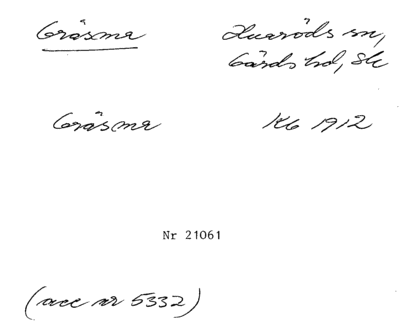 Gräsma Huaröds sn,
Gärds hd, Sk
Gräsma KG 1912
Nr 21061
(acc nr 5332)